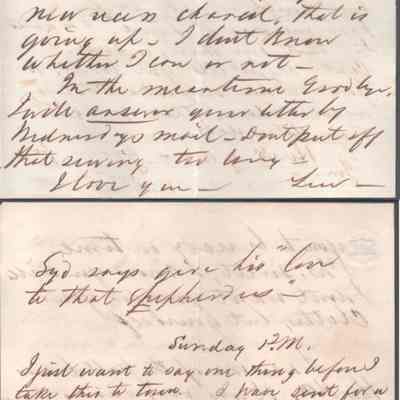 new chapel, that is
going up – I don't know
whether I can or not –
In the meantime Good bye,
I will answer your letter by
Wednesdays mail – Dont put off
that sewing too long –
I love you – Lew –
Syd says give his "love
to that shepherdess" –
Sunday P.M.
I just want to say one thing before I
take this to town. I have sent for a